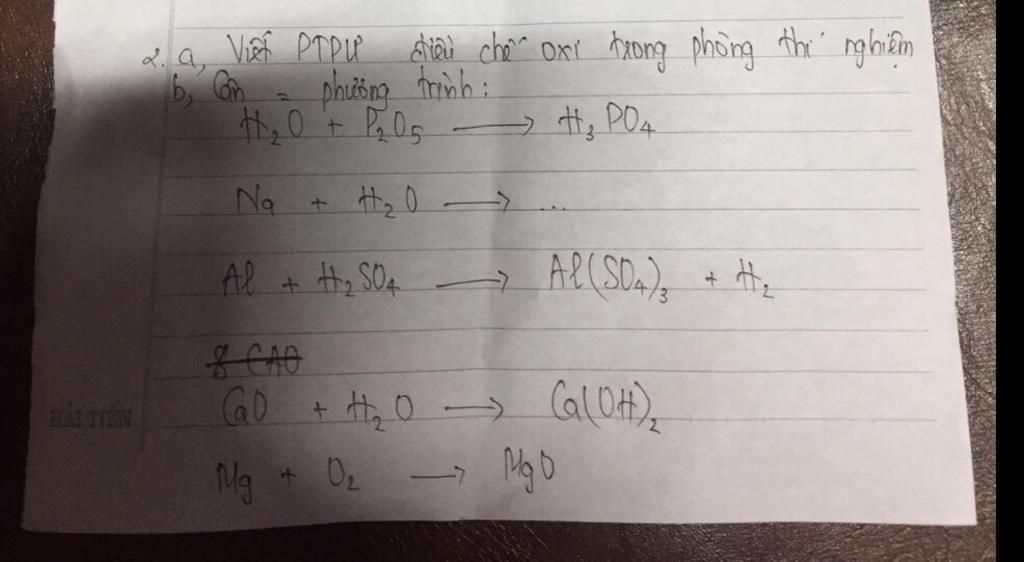 2. a, Viết PTPƯ điều chế oxi trong phòng thí nghiệm
b, Cân = phương trình:
H₂O + P₂O₅ ⟶ H₃PO₄
Na + H₂O ⟶ ...
Al + H₂SO₄ ⟶ Al(SO₄)₃ + H₂
CaO + H₂O ⟶ Ca(OH)₂
HẢI TIẾN
Mg + O₂ ⟶ MgO